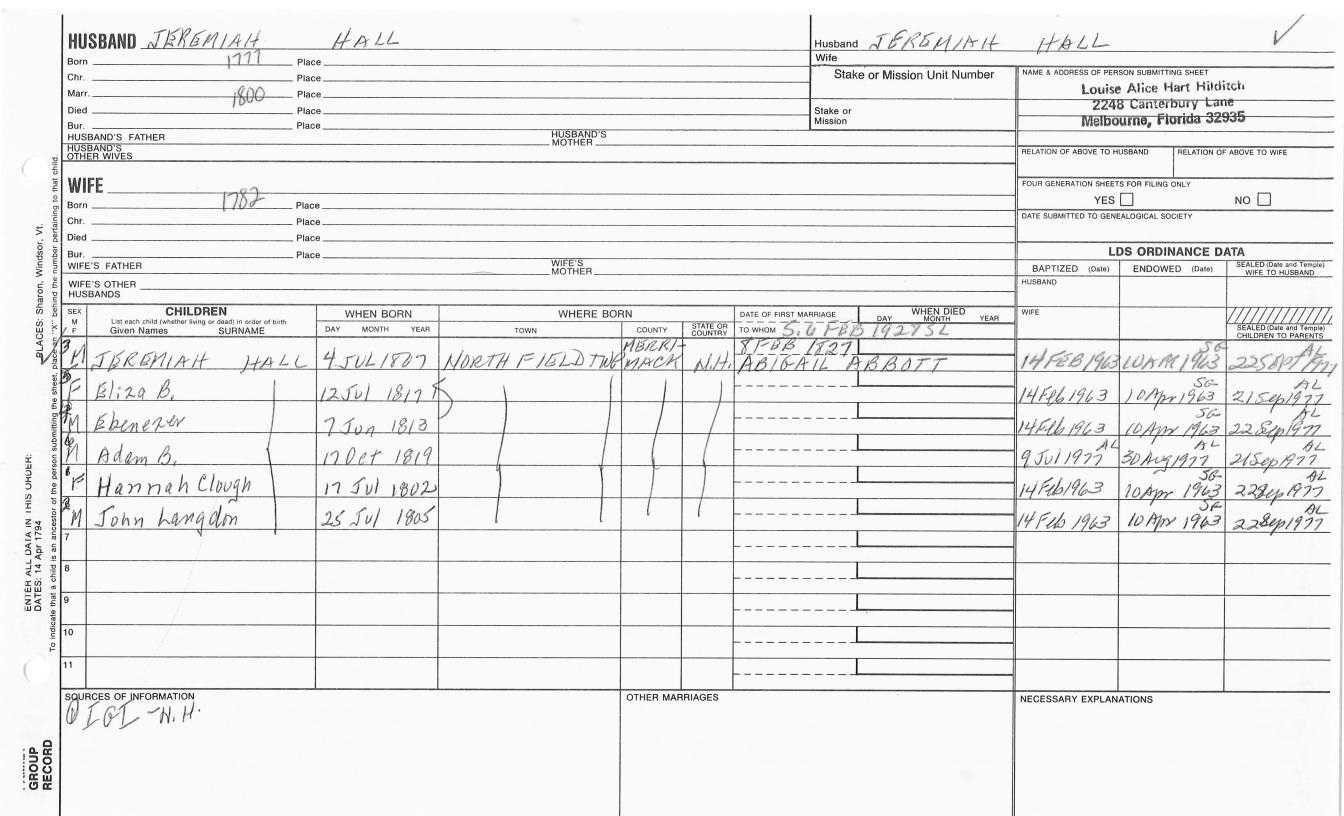 HUSBAND JEREMIAH HALL
Born 1777 Place
Chr. Place
Marr. 1800 Place
Died Place
Bur. Place
HUSBAND'S FATHER HUSBAND'S MOTHER
HUSBAND'S OTHER WIVES
Husband JEREMIAH HALL
Wife
Stake or Mission Unit Number
Stake or Mission
NAME & ADDRESS OF PERSON SUBMITTING SHEET
Louise Alice Hart Hilditch
2248 Canterbury Lane
Melbourne, Florida 32935
RELATION OF ABOVE TO HUSBAND RELATION OF ABOVE TO WIFE
FOUR GENERATION SHEETS FOR FILING ONLY
YES NO
DATE SUBMITTED TO GENEALOGICAL SOCIETY
WIFE
Born 1782 Place
Chr. Place
Died Place
Bur. Place
WIFE'S FATHER WIFE'S MOTHER
WIFE'S OTHER HUSBANDS
LDS ORDINANCE DATA
BAPTIZED (Date) ENDOWED (Date) SEALED (Date and Temple) WIFE TO HUSBAND
HUSBAND
WIFE
SEALED (Date and Temple) CHILDREN TO PARENTS
SEX M F
CHILDREN
List each child (whether living or dead) in order of birth
Given Names SURNAME
WHEN BORN
DAY MONTH YEAR
WHERE BORN
TOWN COUNTY STATE OR COUNTRY
DATE OF FIRST MARRIAGE
TO WHOM
WHEN DIED
DAY MONTH YEAR
S. 6 FEB 1929 SL
3 M JEREMIAH HALL 4 JUL 1807 NORTH FIELD TWP MERRI-MACK N.H. 8 FEB 1827 ABIGAIL ABBOTT 14 FEB 1963 10 APR 1963 SG 22 SEPT 1977 AL
F Eliza B. 12 Jul 1817 14 Feb 1963 10 Apr 1963 SG 21 Sep 1977 AL
M Ebenezer 7 Jun 1813 14 Feb 1963 10 Apr 1963 SG 22 Sep 1977 AL
M Adam B. 17 Oct 1819 9 Jul 1977 AL 30 Aug 1977 AL 21 Sep 1977 AL
1 F Hannah Clough 17 Jul 1802 14 Feb 1963 10 Apr 1963 SG 22 Sep 1977 AL
2 M John Langdon 25 Jul 1805 14 Feb 1963 10 Apr 1963 SG 22 Sep 1977 AL
7
8
9
10
11
SOURCES OF INFORMATION
① IGI - N.H.
OTHER MARRIAGES
NECESSARY EXPLANATIONS
ENTER ALL DATA IN THIS ORDER:
DATES: 14 Apr 1794
PLACES: Sharon, Windsor, Vt.
To indicate that a child is an ancestor of the person submitting the sheet, place an "X" behind the number pertaining to that child.
GROUP
RECORD